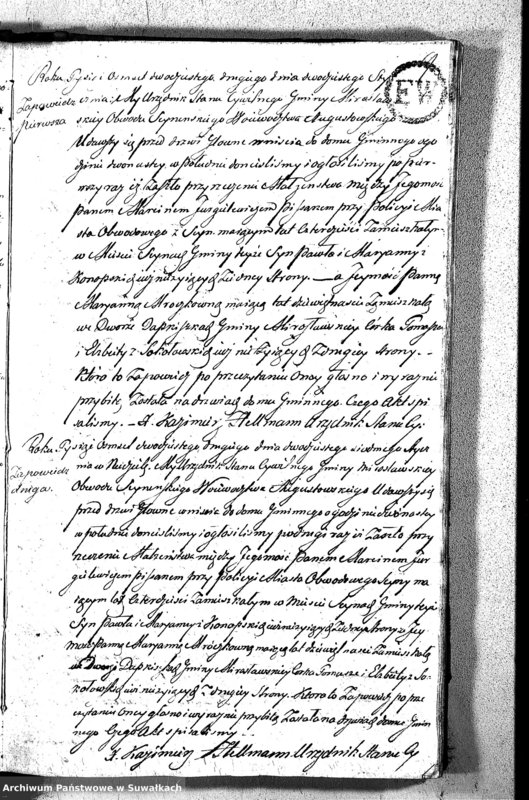 EW
Roku Tysiąc Osmset dwudziestego drugiego dnia dwudziestego Sty
Zapowiedz
pierwsza
cznia. My Urzędnik Stanu Cywilnego Gminy Mirosław
skiey Obwodu Seynenskiego Woiewodztwa Augustowskiego
Udawszy się przed drzwi Głowne weyścia do domu Gminnego o go
dzinie dwonastey w południe donieśliśmy i ogłosiliśmy po pier
wszy raz iż Zaszło przyrzeczenie Małżeństwa między Jegomość
Panem Marcinem Jurgilewiczem Pisarzem przy Policyi Mia
sta Obwodowego Seyn maiącym lat Czterdzieści Zamieszkałym
w Mieście Seynach Gminy teyże Syn Pawła i Maryanny z
Konopskich iuż nieżyiących z iedney Strony. — a Jeymość Panną
Maryanną Mroczkowną maiącą lat dziewiętnaście Zamieszkałą
we Dworze Gminy Mirosławskiey Córka Tomasza
i Elżbiety z Sokołowskich iuż nieżyiących z drugiey strony. –
Która to Zapowiedz po przeczytaniu Oney głośno i wyraźnie
przybitą Została na drzwiach domu Gminnego. Czego Akt spi
saliśmy. – Kazimierz Stellmann Urzędnik Stanu Cy:
Roku Tysiąc Osmset dwudziestego drugiego dnia dwudziestego siodmego Stycz
Zapowiedz
druga.
nia w Niedzielę. My Urzędnik Stanu Cywilnego Gminy Mirosławskiey
Obwodu Seynenskiego Woiewodztwa Augustowskiego Udawszy się
przed drzwi Głowne weyścia do domu Gminnego o godzinie dwonastey
w południe donieśliśmy i ogłosiliśmy podrugi raz iż Zaszło przy
rzeczenie Małżeństwa między Jegomość Panem Marcinem Jur
gilewiczem Pisarzem przy Policyi Miasta Obwodowego Seyny ma
iącym lat Czterdzieści Zamieszkałym w Mieście Seynach Gminy teyże
Syn Pawła i Maryanny z Konopskich iuż nieżyiących z iedney Strony a Jey
mość Panną Maryanną Mroczkowną maiącą lat dziewiętnaście Zamieszkałą
we Dworze Gminy Mirosławskiey Córka Tomasza i Elżbiety z So
kołowskich iuż nieżyiących z drugiey Strony. Która to Zapowiedz po prze
czytaniu Oney głośno i wyraźnie przybitą Została na drzwiach domu Gmin
nego Czego Akt spisaliśmy —
Kazimierz Stellmann Urzędnik Stanu Cy
Archiwum Państwowe w Suwałkach